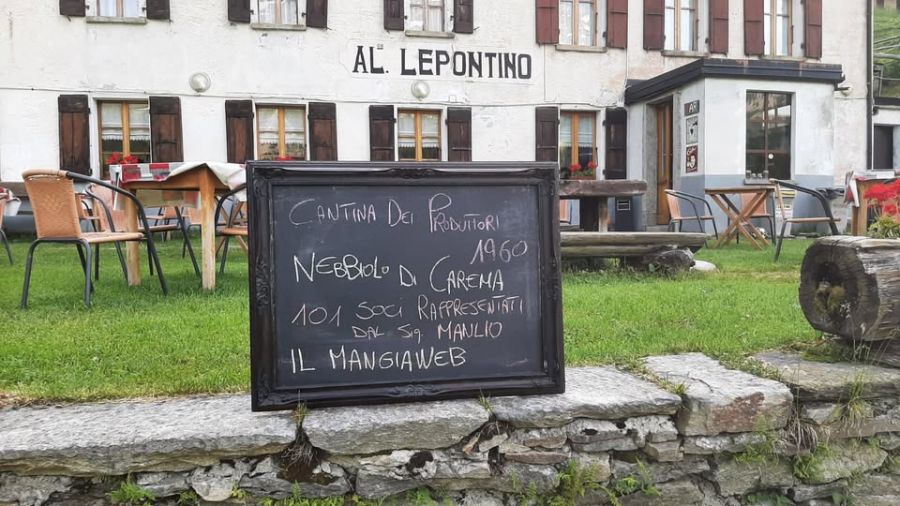 AL LEPONTINO
CANTINA DEI PRODUTTORI
1960
NEBBIOLO DI CAREMA
101 SOCI RAPPRESENTATI
DAL SIG. MANLIO
IL MANGIAWEB